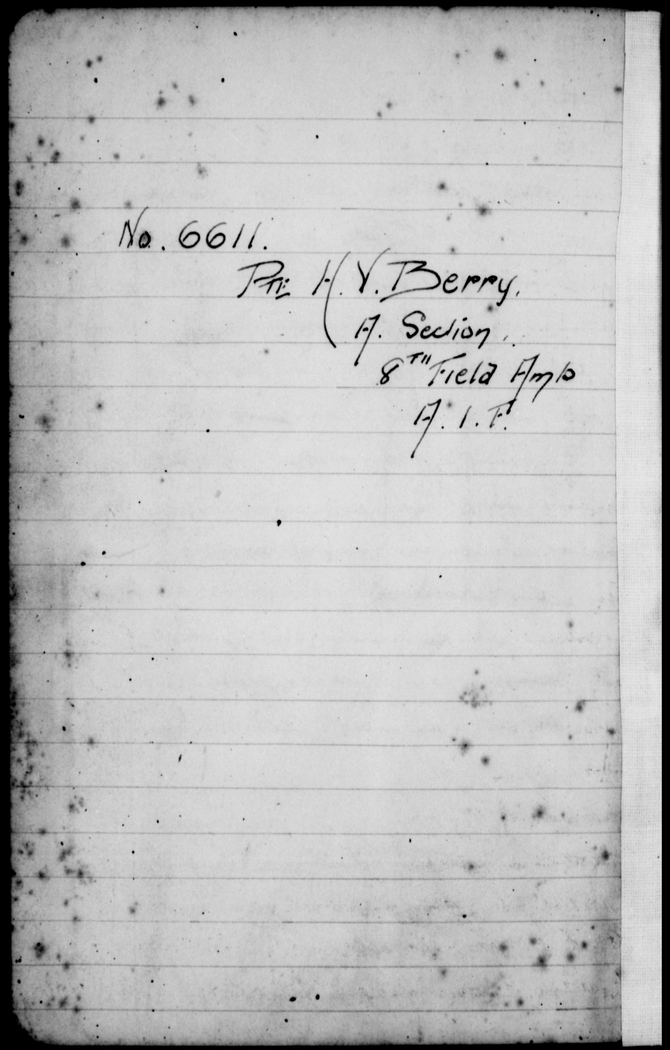 No. 6611.
Pte H. V. Berry.
A. Section.
8TH Field Amb
A. I. F.